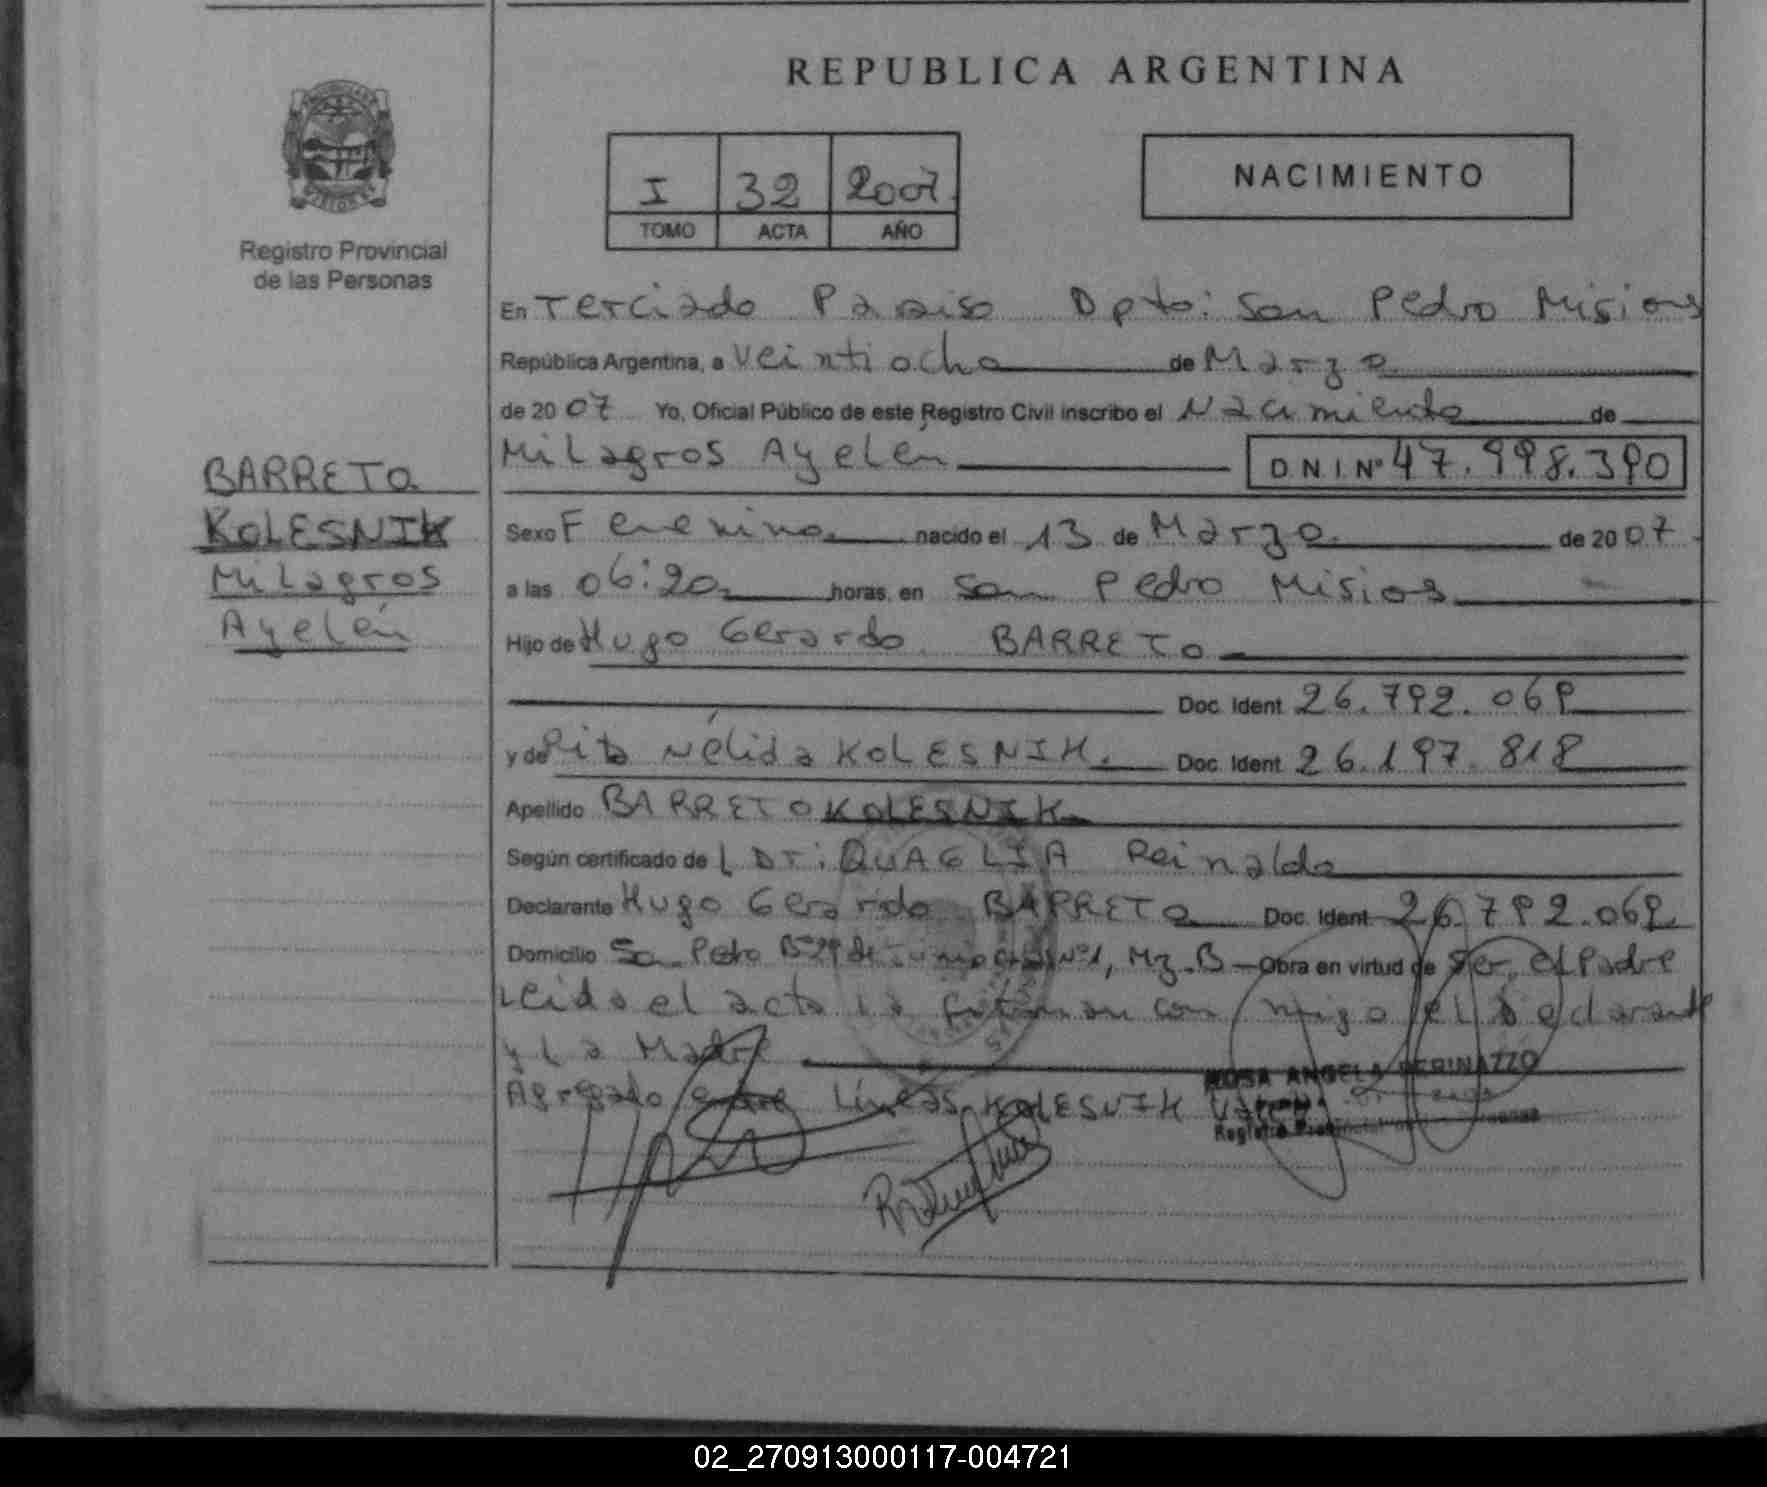 REPUBLICA ARGENTINA
I 32 2007
TOMO ACTA AÑO
NACIMIENTO
Registro Provincial
de las Personas
En Terciado Paraiso Dpto: San Pedro Misiones
República Argentina, a Veintiocho de Marzo
de 20 07 Yo, Oficial Público de este Registro Civil inscribo el Nacimiento de
Milagros Ayelén D.N.I. Nº 47.998.390
BARRETO
KOLESNIK
Milagros
Ayelén
Sexo Femenino nacido el 13 de Marzo de 20 07
a las 06:20 horas, en San Pedro Misios
Hijo de Hugo Gerardo BARRETO
Doc. Ident 26.792.069
y de Rita Nélida KOLESNIK. Doc. Ident 26.197.818
Apellido BARRETO KOLESNIK
Según certificado de Dr: QUAGLIA Reinaldo
Declarante Hugo Gerardo BARRETO Doc. Ident 26.792.069
Domicilio San Pedro Nº1, Mz. B Obra en virtud de Ser el Padre
Leida el acta la firman con migo el Declarante
y La Madre
Agregado entre Líneas KOLESNIK Vale
ROSA ANGELA PERINAZZO
02_270913000117-004721